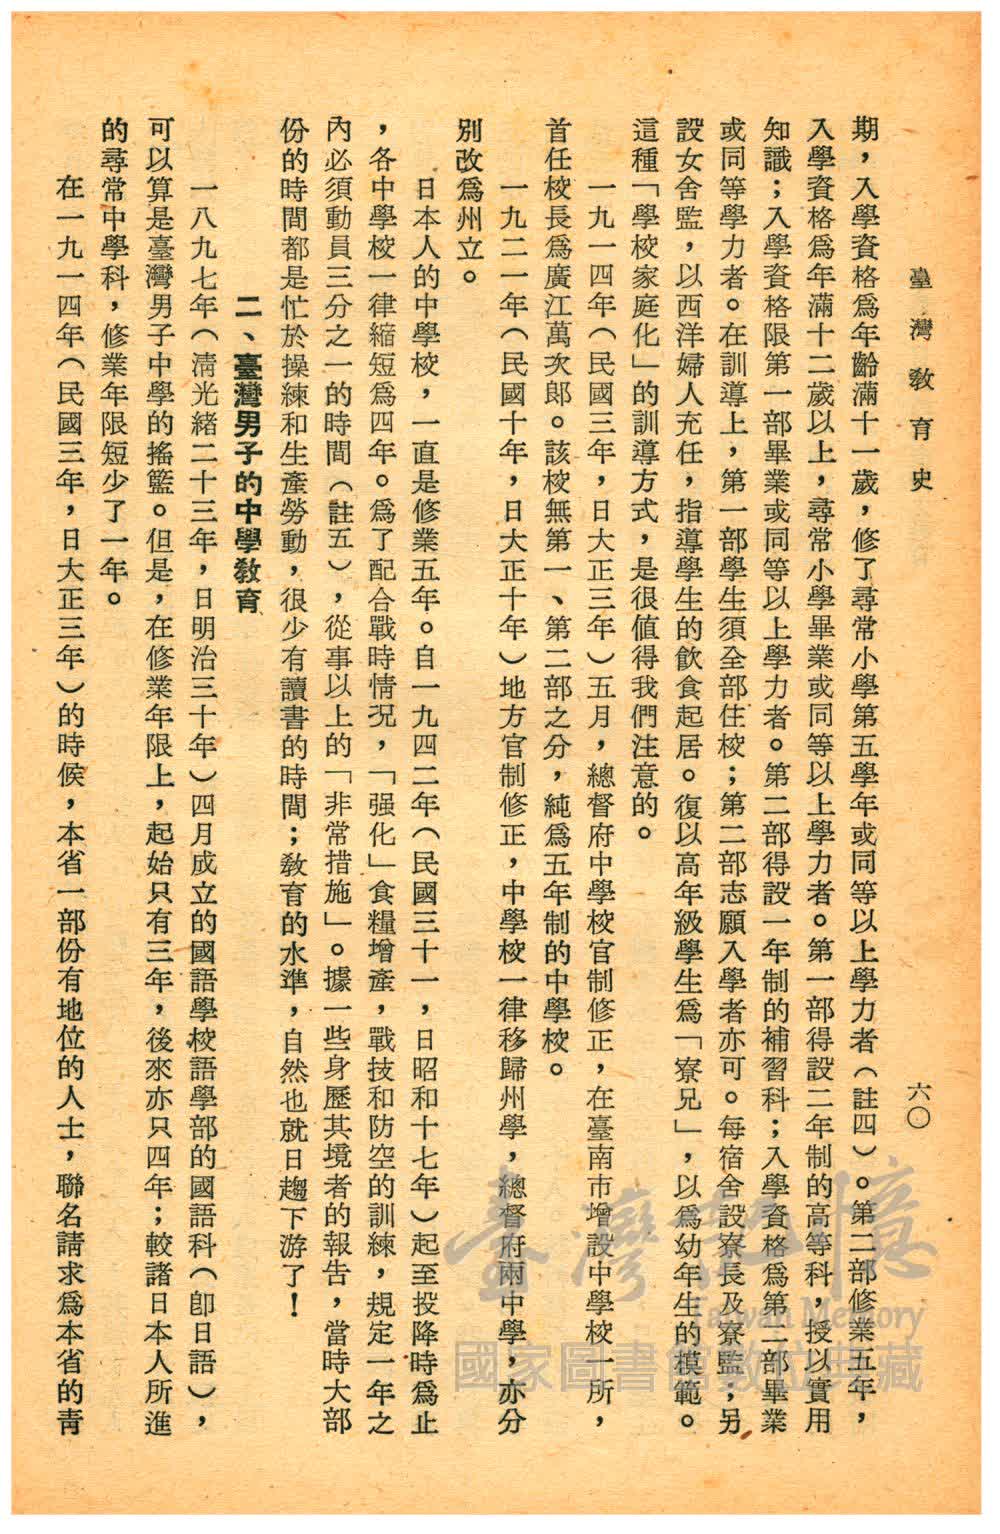 臺灣教育史
六〇
期，入學資格爲年齡滿十一歲，修了尋常小學第五學年或同等以上學力者（註四）。第二部修業五年，
入學資格爲年滿十二歲以上，尋常小學畢業或同等以上學力者。第一部得設二年制的高等科，授以實用
知識；入學資格限第一部畢業或同等以上學力者。第二部得設一年制的補習科；入學資格爲第二部畢業
或同等學力者。在訓導上，第一部學生須全部住校；第二部志願入學者亦可。每宿舍設寮長及寮監；另
設女舍監，以西洋婦人充任，指導學生的飮食起居。復以高年級學生爲「寮兄」，以爲幼年生的模範。
這種「學校家庭化」的訓導方式，是很值得我們注意的。
一九一四年（民國三年，日大正三年）五月，總督府中學校官制修正，在臺南市增設中學校一所，
首任校長爲廣江萬次郎。該校無第一、第二部之分，純爲五年制的中學校。
一九二一年（民國十年，日大正十年）地方官制修正，中學校一律移歸州學，總督府兩中學，亦分
別改爲州立。
日本人的中學校，一直是修業五年。自一九四二年（民國三十一，日昭和十七年）起至投降時爲止
，各中學校一律縮短爲四年。爲了配合戰時情況，「强化」食糧增產，戰技和防空的訓練，規定一年之
內必須動員三分之一的時間（註五），從事以上的「非常措施」。據一些身歷其境者的報告，當時大部
份的時間都是忙於操練和生產勞動，很少有讀書的時間；敎育的水準，自然也就日趨下游了！
二、臺灣男子的中學敎育
一八九七年（淸光緒二十三年，日明治三十年）四月成立的國語學校語學部的國語科（卽日語），
可以算是臺灣男子中學的搖籃。但是，在修業年限上，起始只有三年，後來亦只四年；較諸日本人所進
的尋常中學科，修業年限短少了一年。
在一九一四年（民國三年，日大正三年）的時候，本省一部份有地位的人士，聯名請求爲本省的靑
臺灣記憶
Taiwan Memory
國家圖書館數位典藏